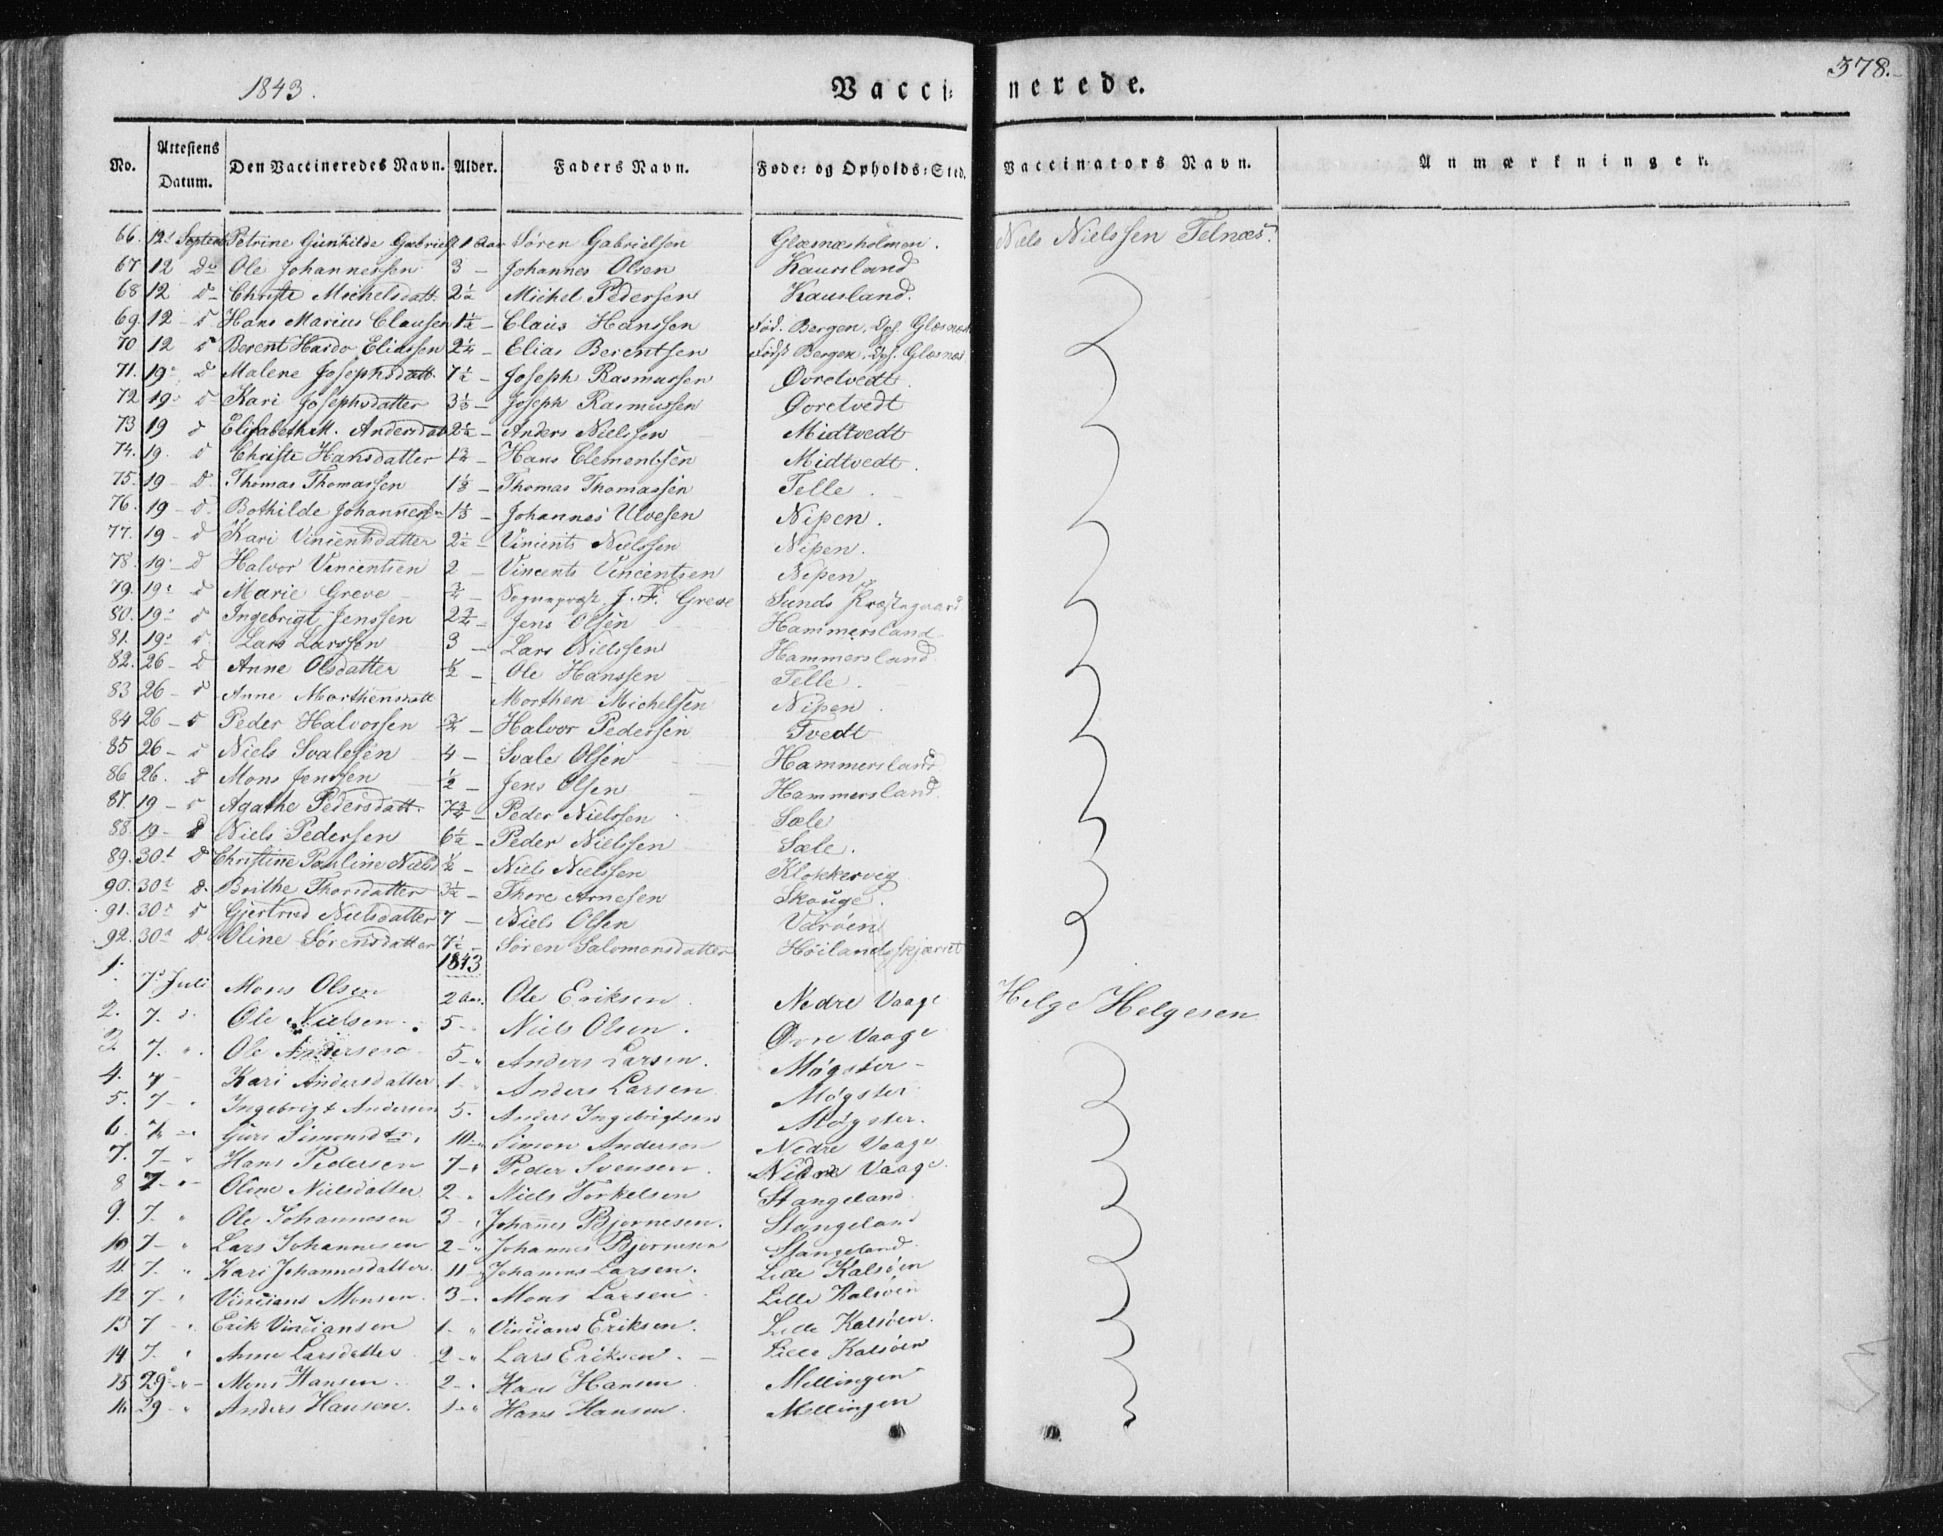 1843.
Vacci-
nerede.
378.
No. Attestens Datum. Den Vaccineredes Navn. Alder. Faders Navn. Føde- og Opholds-Sted. Vaccinators Navn. Anmærkninger.
66. 12t Septem Petrine Gunhilde Gabriels 1 Aar Søren Gabrielsen Glæsnæsholmen. Niels Nielssen Telnæs.
67 12 Do Ole Johannessen 3 - Johannes Olsen Kausland
68 12 D- Christi Michelsdatt. 2½ Michel Pedersen Kausland.
69. 12 - D Hans Marius Clausen 1½ - Claus Hanssen Fød. Bergen, Oph. Glæsnæs
70 12 D Berent Hardo Eliassen 2¼ - Elias Berentsen Fødst Bergen, Oph. Glæsnæs
71. 19 D Malene Josephsdatt. 7½ - Joseph Rasmussen Øvretvedt.
72 19 D Kari Josephsdatter 3⅓ - Joseph Rasmussen Øvretvedt
73 19 D Elisabeth M. Andersdat 2½ - Anders Nielssen Midtvedt
74. 19. D Christi Hansdatter 1¾ - Hans Clementsen Midtvedt.
75. 19 - D. Thomas Thomassen 1⅓ - Thomas Thomassen Telle.
76. 19 - D. Bothilde Johannes 1⅓ - Johannes Ulvesen Nipen.
77. 19 - D Kari Vincentsdatter 2½ - Vincents Nielssen Nipen.
78. 19 - D Halvor Vincentsen 2 - Vincents Vincentsen Nipen
79. 19 D Marie Greve ¾ - Sogneprest J. F. Greve Sunds Præstegaard
80. 19 D Ingebrigt Jenssen 2¾ - Jens Olsen Hammersland
81. 19 D Lars Larssen 3 - Lars Nielssen Hammersland
82. 26 - D Anne Olsdatter ½ - Ole Hanssen Telle.
83 26 - D Anne Morthensdatt Morthen Michelsen Nipen.
84 26 - D Peder Halvorsen ¾ - Halvor Pedersen Tvedt
85 26 - D Niels Svalesen 4 - Svale Olsen Hammersland
86 26. D Mons Jenssen ½ - Jens Olsen Hammersland.
87. 19 - D Agathe Pedersdatt. 7¾ - Peder Nielssen Sæle
88. 19 - D Niels Pedersen 6½ - Peder Nielssen Sæle.
89. 30t D Christine Pauline Nielsd ½ - Niels Nielssen Klokkervig
90. 30t D. Brithe Thorsdatter 3½ - Thore Arnesen Skouge.
91. 30t D Gjertrud Nielsdatter 7 - Niels Olsen Varøen
92. 30t D Oline Sørensdatter 7½ - Søren Salomonsdatter Høilandsskjæret
1843
1. 7de Juli Mons Olsen 2 Aar. Ole Eriksen Nedre Vaage Helge Helgesen
2. 7. " Ole Nielsen. 5 - Niels Olsen. Øvre Vaage
3. 7. " Ole Andersen 5 - " Anders Larsen. Møgster -
4. 7 - Kari Andersdatter 1 - " Anders Larsen Møgster
5. 7 - " Ingebrigt Andersen 5. Anders Ingebrigtsen Møgster.
6. 7 - " Guro Simonsdtr. 10 - " Simon Andersen Nedre Vaage
7. 7 - " Hans Pedersen 7 - " Peder Svensen. Nedre Vaage.
8 7 - " Oline Nielsdatter 2 - " Niels Torkelsen Stangeland
9. 7. " Ole Johannesen 3 - " Johannes Bjørnesen. Stangeland
10 7 - " Lars Johannesen 2 - " Johannes Bjørnesen Stangeland.
11. 7. " Kari Johannesdatter. 11 - " Johannes Larsen. Lille Kalsøen
12. 7 - " Vincians Monsen. 3 - . Mons Larsen Lille Kalsøen
13 7 - " Erik Vinciansen 1 - " Vincians Eriksen. Lille Kalsøen.
14 7. " Anne Larsdatter 2 - " Lars Eriksen. - Lille Kalsøen
15 29 - " - Mons Hansen. 2 - . Hans Hansen Mellingen
16 29 - " Anders Hansen. 1 - " Hans Hansen. Mellingen